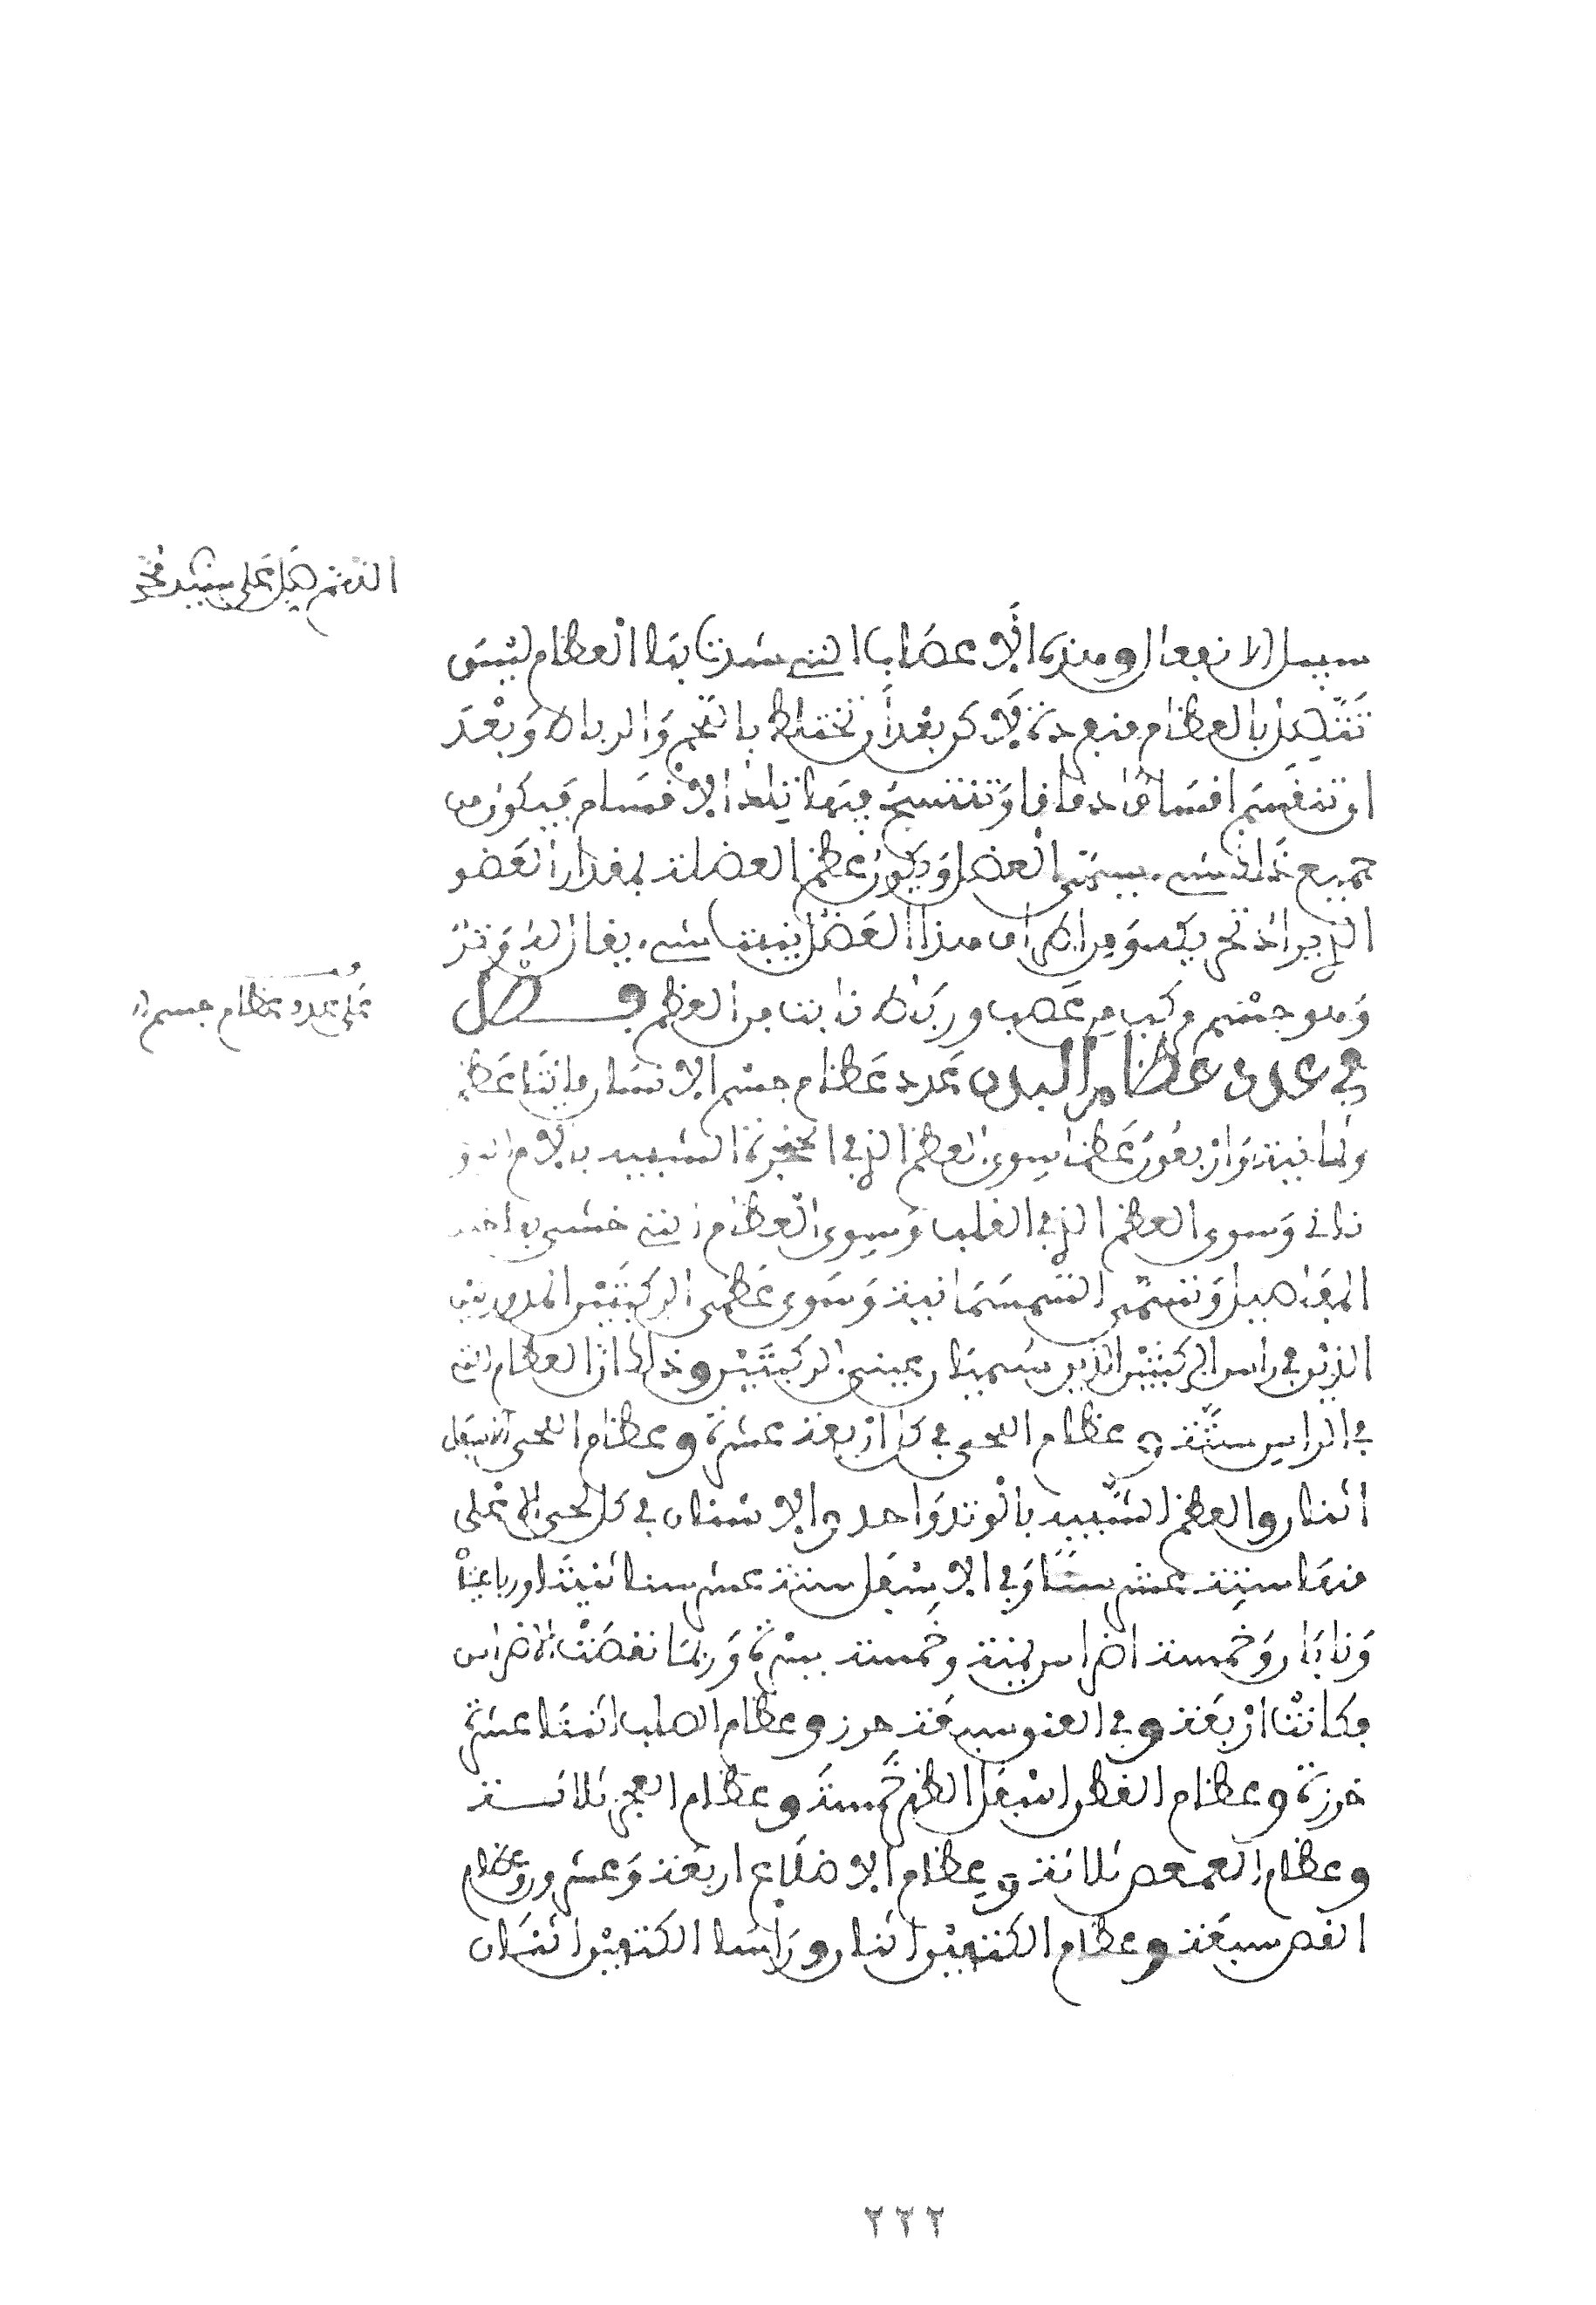 اللهم صل على سيدنا محمد
سبيل الانفعال وهذه الأعصاب التي شدت بها العظام ليس
تتصل بالعظام منفردة لاكن بعد أن تختلط باللحم والرباط وبعد
ان تنقسم اقسامًا دقاقا وتنتسج فيها تلك الاقسام فيكون من
جميع ذالك شيء يسمى العضل ويكون عظم العضلة بمقدار العضو
الذي يراد تحريكه ومن اطراف هذا العضل ينبت شيء يقال له وتر
وهو جسم مركب من عصب ورباط نابت من العظم فصل
على عدد عظام جسم
في عدد عظام البدن عدد عظام جسم الانسان مائتا عظم
وثمانية وأربعون عظما سوى العظم الذي في الحنجرة الشبيه بلام
وسوى العظم الذي في القلب وسوى العظام التي حشي بها خلل
المفاصيل وتسمى السمسمانية وسوى عظمي الركبتين المدورين
الذين في راس الركبتين الذين سميتا عيني الركبتين وذلك أن العظام التي
في الراس ستة وعظام اللحي في كل أربعة عشرة وعظام اللحي الاسفل
اثنان والعظم الشبيه بالوتد واحد والاسنان في كل لحي الاعلى
منها ستة عشر سنًا وفي الاسفل ستة عشر سنا ثنيتا ورباعيتا
ونابان وخمسة اضراس يمنة وخمسة يسرة وربما نقصت الاضراس
فكانت أربعة وفي العنق سبعة خرز وعظام الصلب اثنتا عشرة
خرزة وعظام القطن اسفل الظهر خمسة وعظام العجز ثلاثة
وعظام العصعص ثلاثة وعظام الاضلاع اربعة وعشرون وعظام
القص سبعة وعظام الكتفين اثنان وراسا الكتفين اثنان
٢٢٢